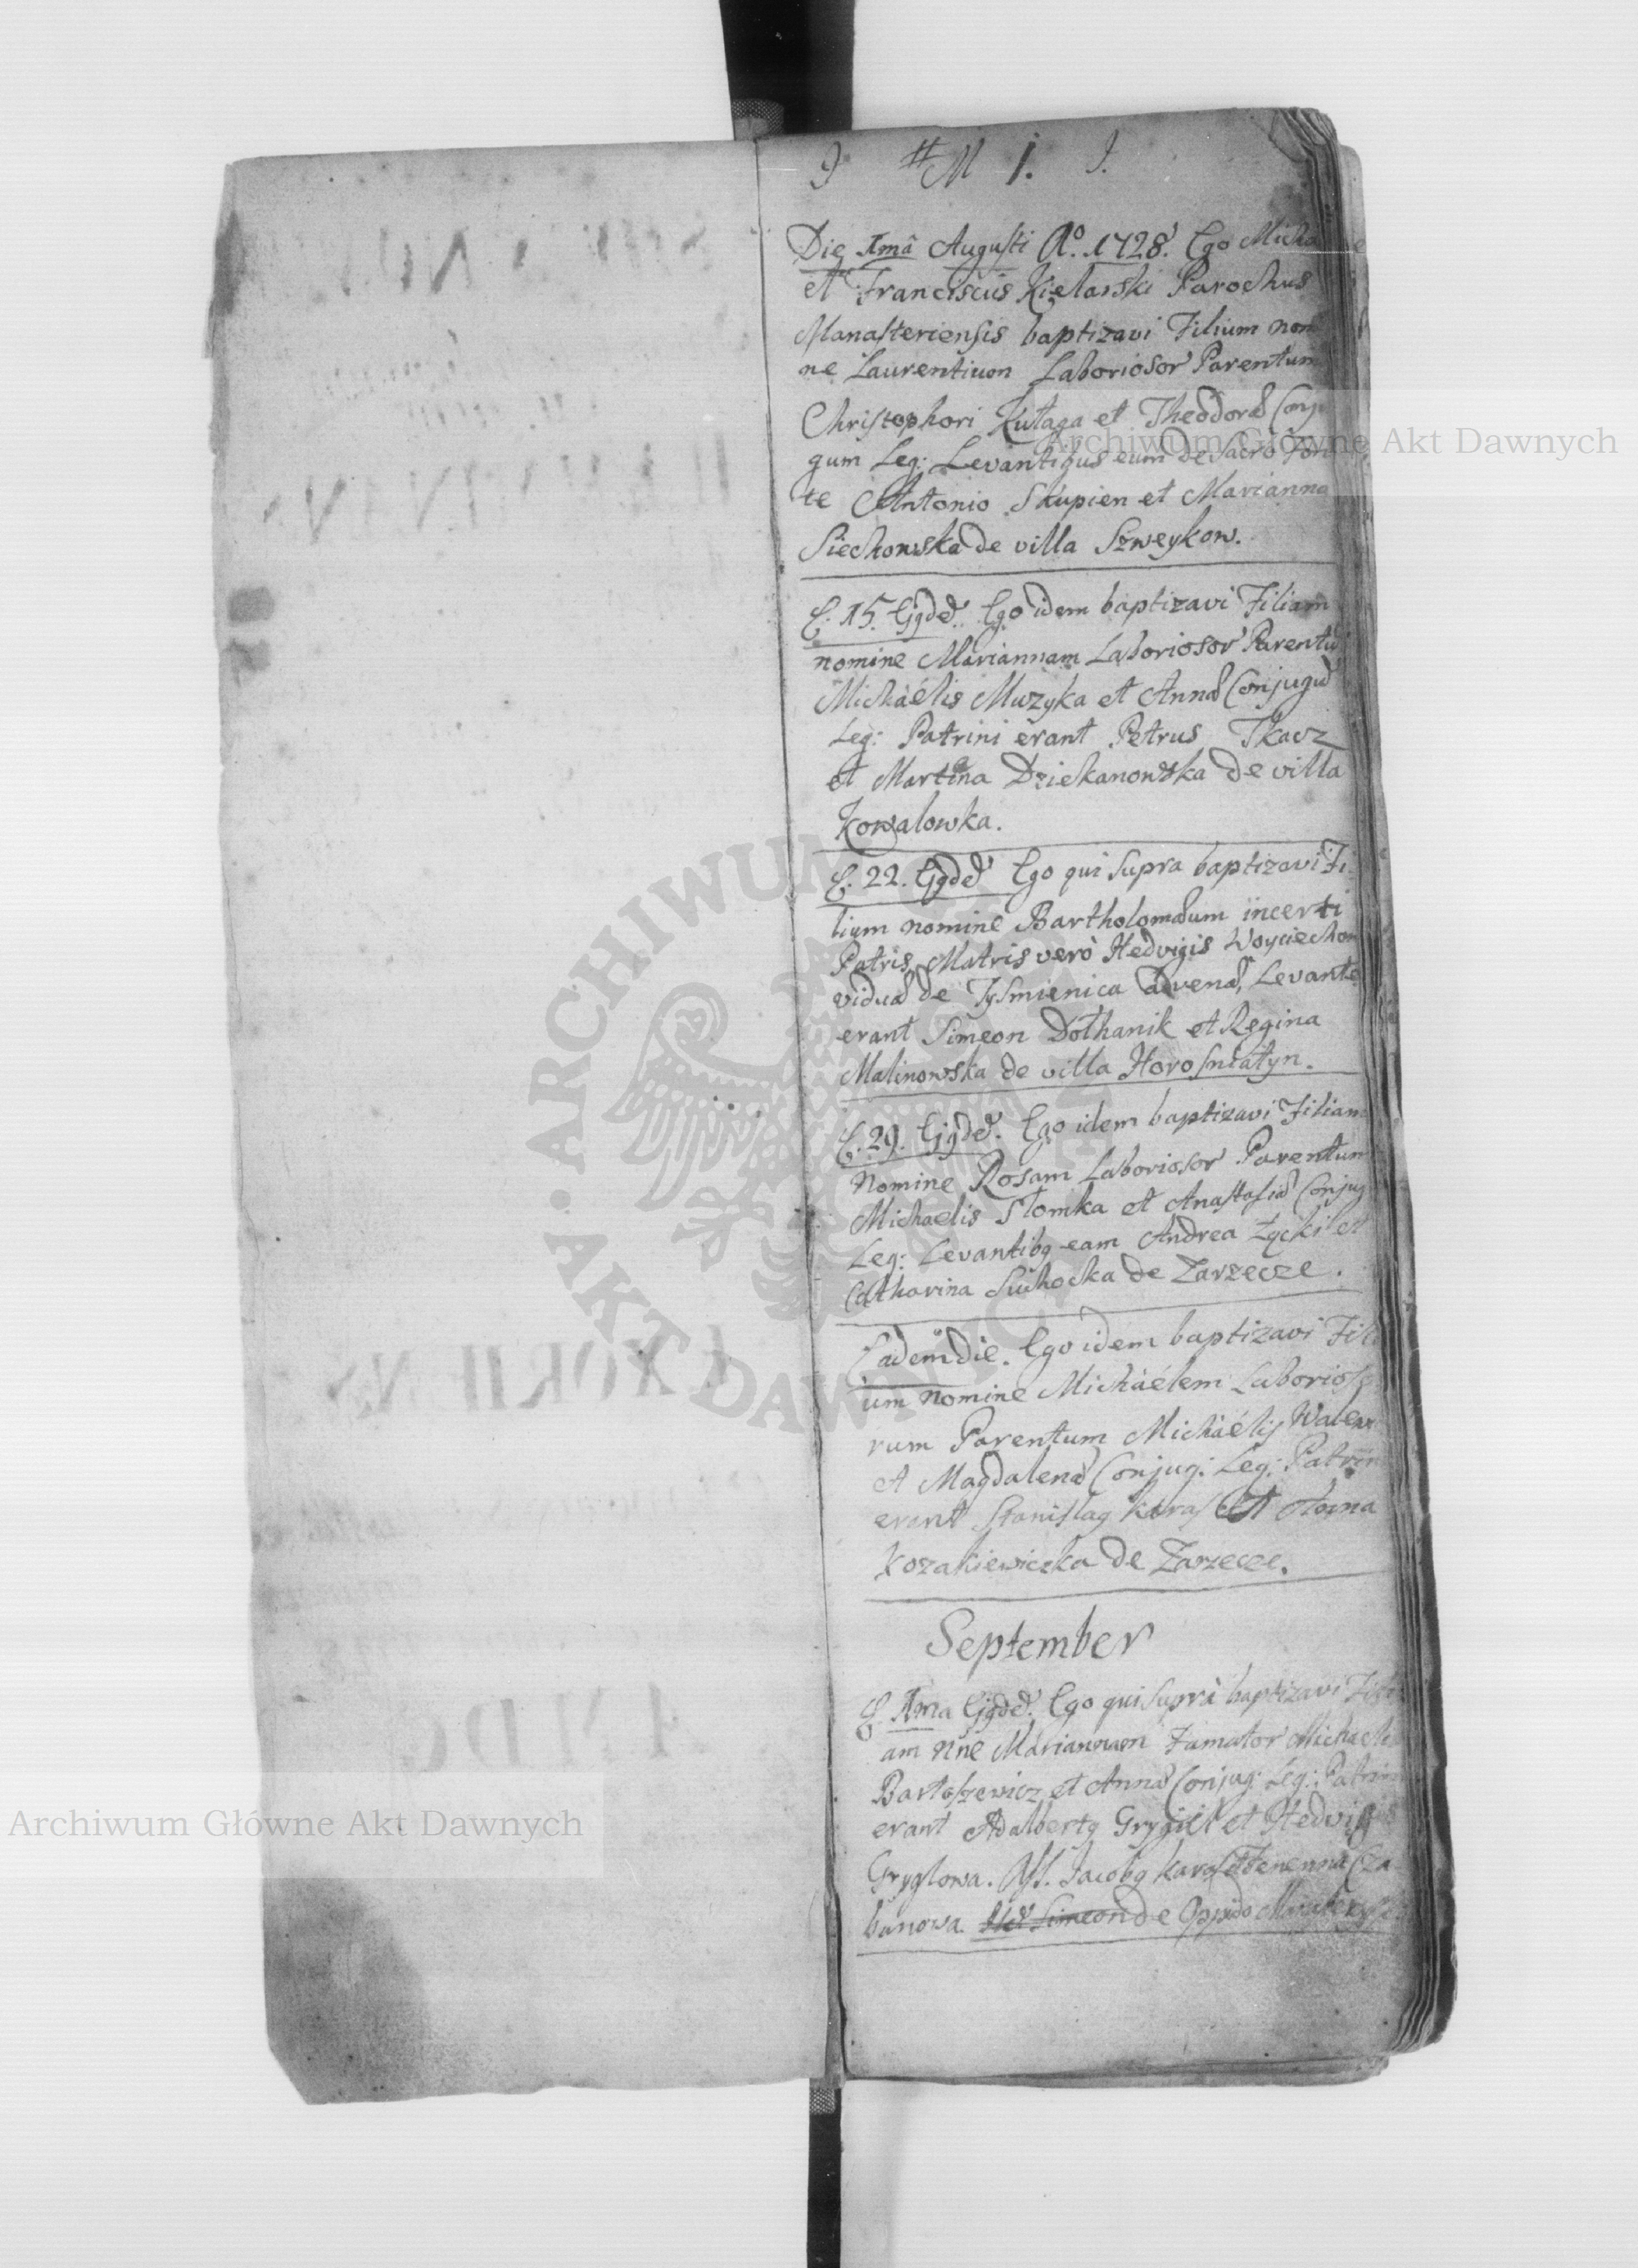 J M J. J.
Die 1mâ Augusti Ao. 1728. Ego Micha
el Franciscus Kielarski Parochus
Manasteriensis baptizavi Filium nomi
ne Laurentium Laborioſor Parentum
Christophori Kułaga et Theodoræ Conju
gum Leg: Levantibus eum de Sacro Fon
te Antonio Skupien et Marianna
Siechowska de villa Szweykow.
E. 15. Ejgdẽ. Ego idem baptizavi Filiam
nomine Mariannam Laboriosor Parentũ
Michaélis Muzyka et Annæ Conjugũ
Leg: Patrini erant Petrus Tkacz
et Martina Dziekanowska de villa
Kowalowka.
E. 22. Ejgdẽ Ego qui supra baptizavi Fi
lium nomine Bartholomæum incerti
Patris, Matris verò Hedvigis Woyciechow
viduæ de Tysmienica advenæ, Levante
erant Simeon Dołhanik et Regina
Malinowska de villa Horosniatyn.
E. 29. Ejgdẽ. Ego idem baptizavi Filiam
nomine Rosam Laboriosor Parentum
Michaelis Słomka et Anastasiæ Conjug
Leg: Levantibq eam Andrea Zycki et
Catharina Suchocka de Zarzecze.
Eadem die. Ego idem baptizavi Fili
um nomine Michaélem Laborioso
rum Parentum Michaélis
et Magdalenæ Conjug: Leg: Patrin
erant Stanislaq Karas et
Kozakiewiczka de Zarzecze.
September
E. 1ma Ejgdẽ. Ego qui suprà baptizavi Fili
am nñe Mariannam Famator Michaelis
Bartoszewicz et Annæ Conjug: Leg: Patrin
erant Adalbertq Grygiel et Hedvigis
Gryglowa. Aſſ. Jacobq Karas et
banowa. Simeon de Oppido
Archiwum Główne Akt Dawnych
Archiwum Główne Akt Dawnych
ARCHIWUM GŁÓWNE AKT DAWNYCH